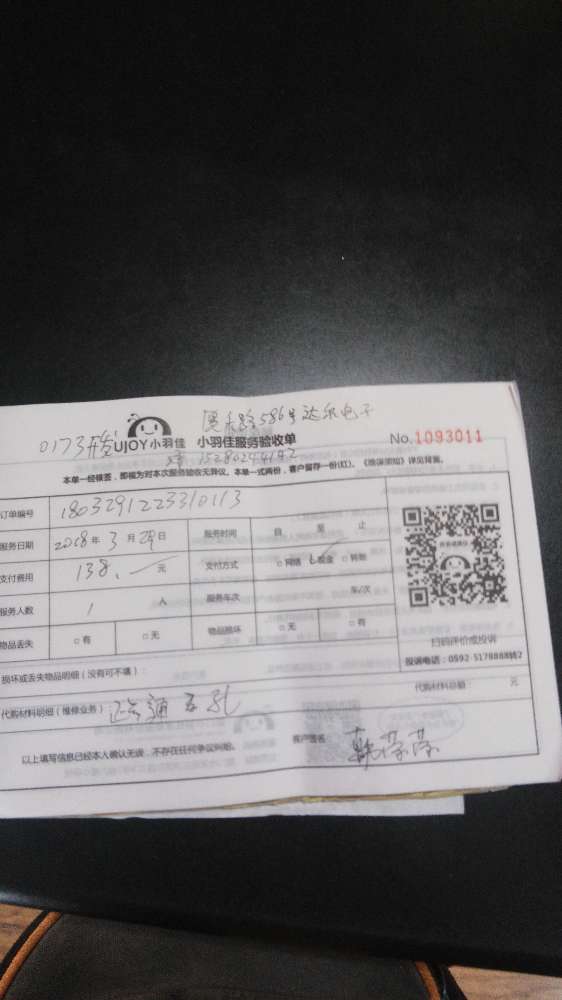 586号达尔电子
0173开发 UJOY小羽佳 小羽佳服务验收单 No.1093011
15280244142
本单一经填签，即视为对本次服务验收无异议。本单一式两份，客户留存一份(红)。《维保须知》详见背面。
订单编号 1803291223310113
服务日期 2018年3月29日 服务时间 自 至 止
支付费用 138.一 元 支付方式 □网络 ☑现金 □转账
服务人数 1 人 服务车次 车/次
物品丢失 □有 □无 物品损坏 □无 □有
扫码评价或投诉
投诉电话：0592-5178888转2
损坏或丢失物品明细（没有可不填）：
代购材料总额 元
代购材料明细（维修业务）
以上填写信息已经本人确认无误，不存在任何争议纠纷。 客户签名：